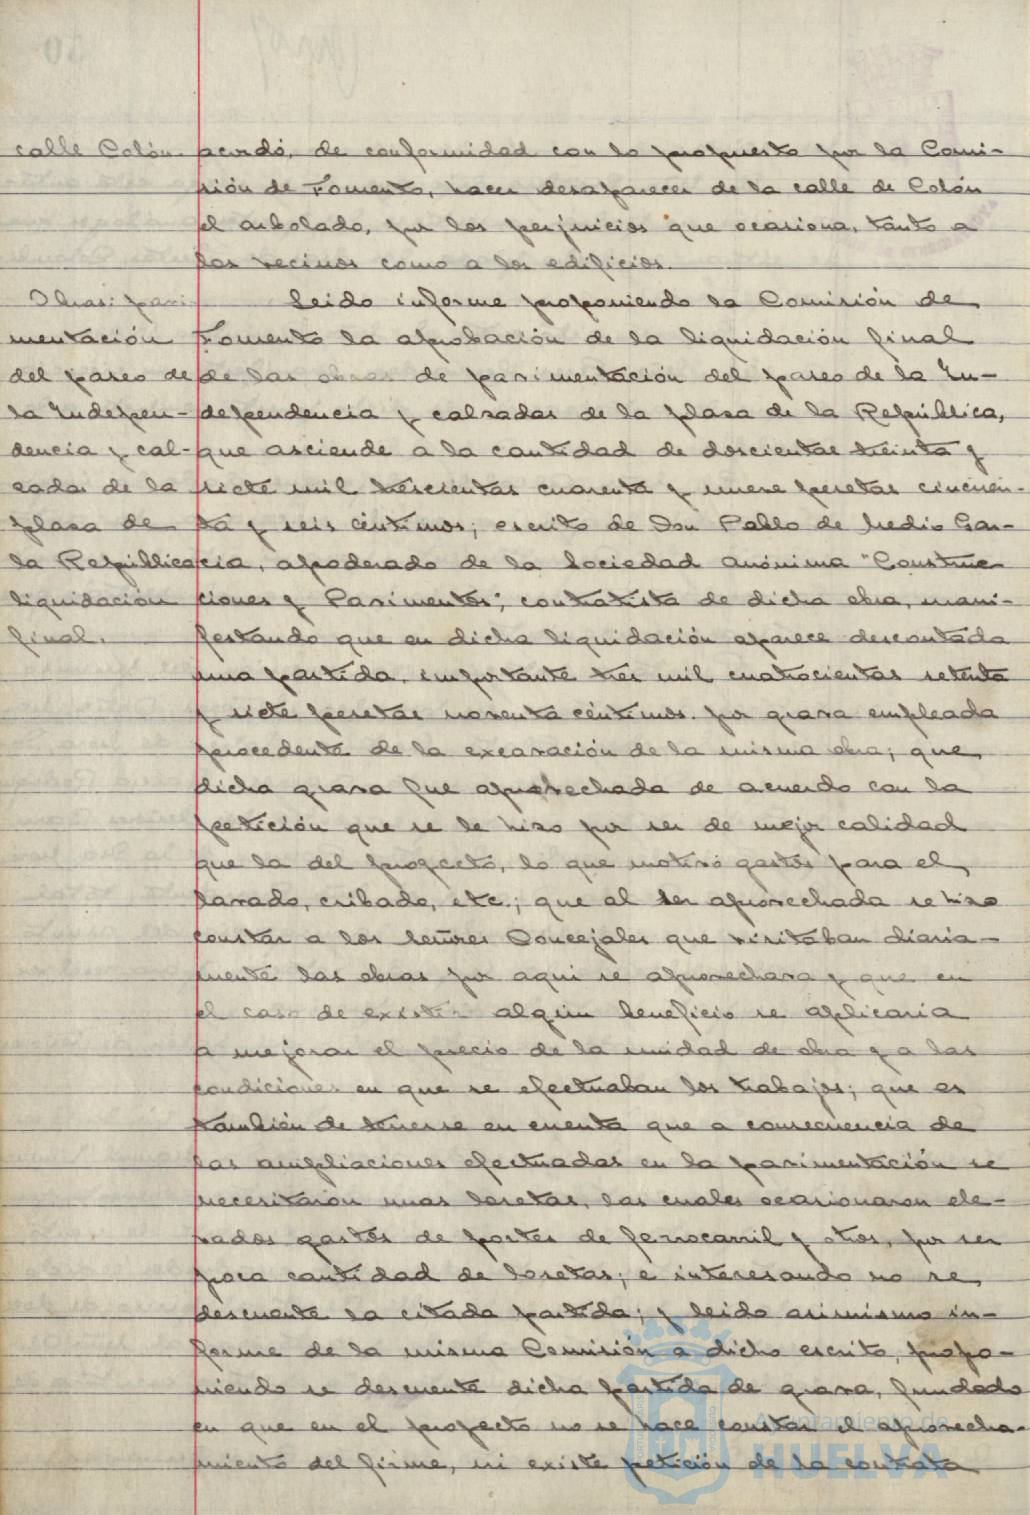 calle Colón. acordó, de conformidad con lo propuesto por la Comi-
sión de Fomento, hacer desaparecer de la calle de Colón
el arbolado, por los perjuicios que ocasiona, tanto a
los vecinos como a los edificios.
Obras: pavi- Leido informe proponiendo la Comisión de
mentación Fomento la aprobación de la liquidación final
del paseo de de las obras de pavimentación del paseo de la In-
la Indepen- dependencia y calzadas de la plaza de la República,
dencia y cal- que asciende a la cantidad de doscientas treinta y
zadas de la siete mil trescientas cuarenta y nueve pesetas cincuen-
plaza de ta y seis céntimos; escrito de Don Pablo de Medio Gar-
la República cia, apoderado de la Sociedad anónima "Construc
liquidación ciones y Pavimentos", contratista de dicha obra, mani-
final. festando que en dicha liquidación aparece descontada
una partida, importante tres mil cuatrocientas setenta
y siete pesetas noventa céntimos. por grava empleada
procedente de la excavación de la misma obra; que,
dicha grava fue aprovechada de acuerdo con la
petición que se le hizo por ser de mejor calidad
que la del proyecto, lo que motivó gastos para el,
lavado, cribado, etc.; que al ser aprovechada se hizo
constar a los señores Concejales que visitaban diaria-
mente las obras por aqui se aprovechara y que en
el caso de existir algún beneficio se aplicaría
a mejorar el precio de la unidad de obra y a las
condiciones en que se efectuaban los trabajos; que es
también de tenerse en cuenta que a consecuencia de
las ampliaciones efectuadas en la pavimentación se
necesitaron unas losetas, las cuales ocasionaron ele-
vados gastos de portes de ferrocarril y otros, por ser
poca cantidad de losetas; e interesando no se,
descuente la citada partida; y leido asimismo in-
forme de la misma Comisión a dicho escrito, propo-
niendo se descuente dicha partida de grava, fundado
en que en el proyecto no se hace constar el aprovecha-
miento del firme, ni existe petición de la contrata
Ayuntamiento de
HUELVA